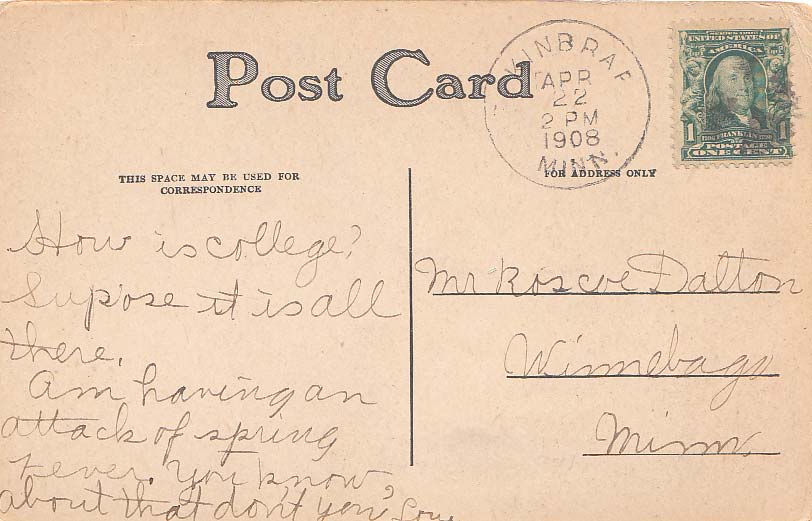 Post Card
KINBRAE
APR
22
2 PM
1908
MINN.
SERIES 1902
UNITED STATES OF
AMERICA
1 1
1706 FRANKLIN 1790
POSTAGE
ONE CENT
THIS SPACE MAY BE USED FOR
CORRESPONDENCE
FOR ADDRESS ONLY
How is college?
Supose it is all
there.
Am having an
attack of spring
fever. You know
about that don't you?
Mr Roscoe Dalton
Winnebago
Minn.